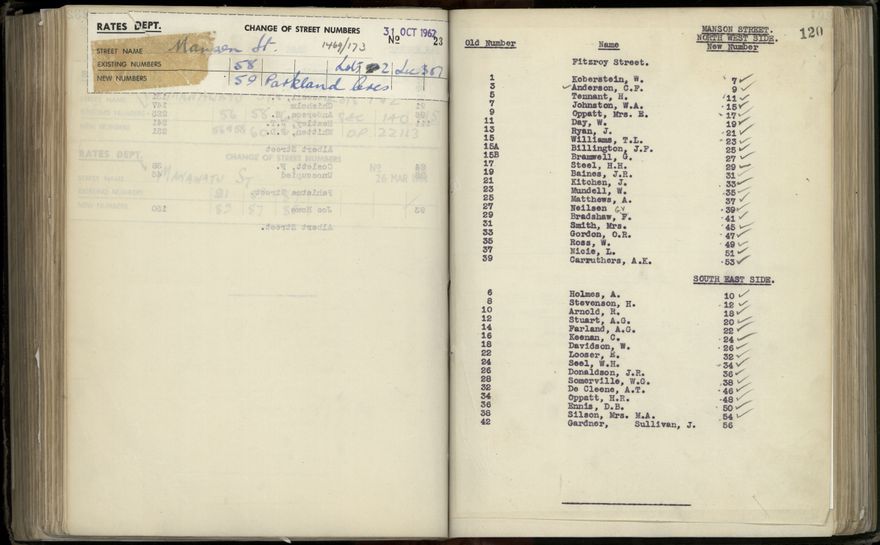 RATES DEPT. CHANGE OF STREET NUMBERS 31 OCT 1962
No 23
1469/173
STREET NAME Manson St.
EXISTING NUMBERS 58 Lot 2
NEW NUMBERS 59 Parkland Cres
120
MANSON STREET.
NORTH WEST SIDE.
Old Number Name New Number
Fitzroy Street.
1 Koberstein, W. 7
3 Anderson, C.F. 9
5 Tennant, H. 11
7 Johnston, W.A. 15
9 Oppatt, Mrs. E. 17
11 Day, W. 19
13 Ryan, J. 21
15 Williams, T.L. 23
15A Billington, J.F. 25
15B Bramwell, G. 27
17 Steel, H.H. 29
19 Baines, J.R. 31
21 Kitchen, J. 33
23 Mundell, W. 35
25 Matthews, A. 37
27 Neilsen 39
29 Bradshaw, F. 41
31 Smith, Mrs. 45
33 Gordon, O.R. 47
35 Ross, W. 49
37 Nicie, L. 51
39 Carruthers, A.K. 53
SOUTH EAST SIDE.
6 Holmes, A. 10
8 Stevenson, H. 12
10 Arnold, R. 18
12 Stuart, A.G. 20
14 Farland, A.G. 22
16 Keenan, C. 24
18 Davidson, W. 26
22 Looser, E. 32
24 Seel, W.H. 34
26 Donaldson, J.R. 36
28 Somerville, W.G. 38
32 De Cleene, A.T. 46
34 Oppatt, H.R. 48
36 Ennis, D.B. 50
38 Silson, Mrs. M.A. 54
42 Gardner, Sullivan, J. 56